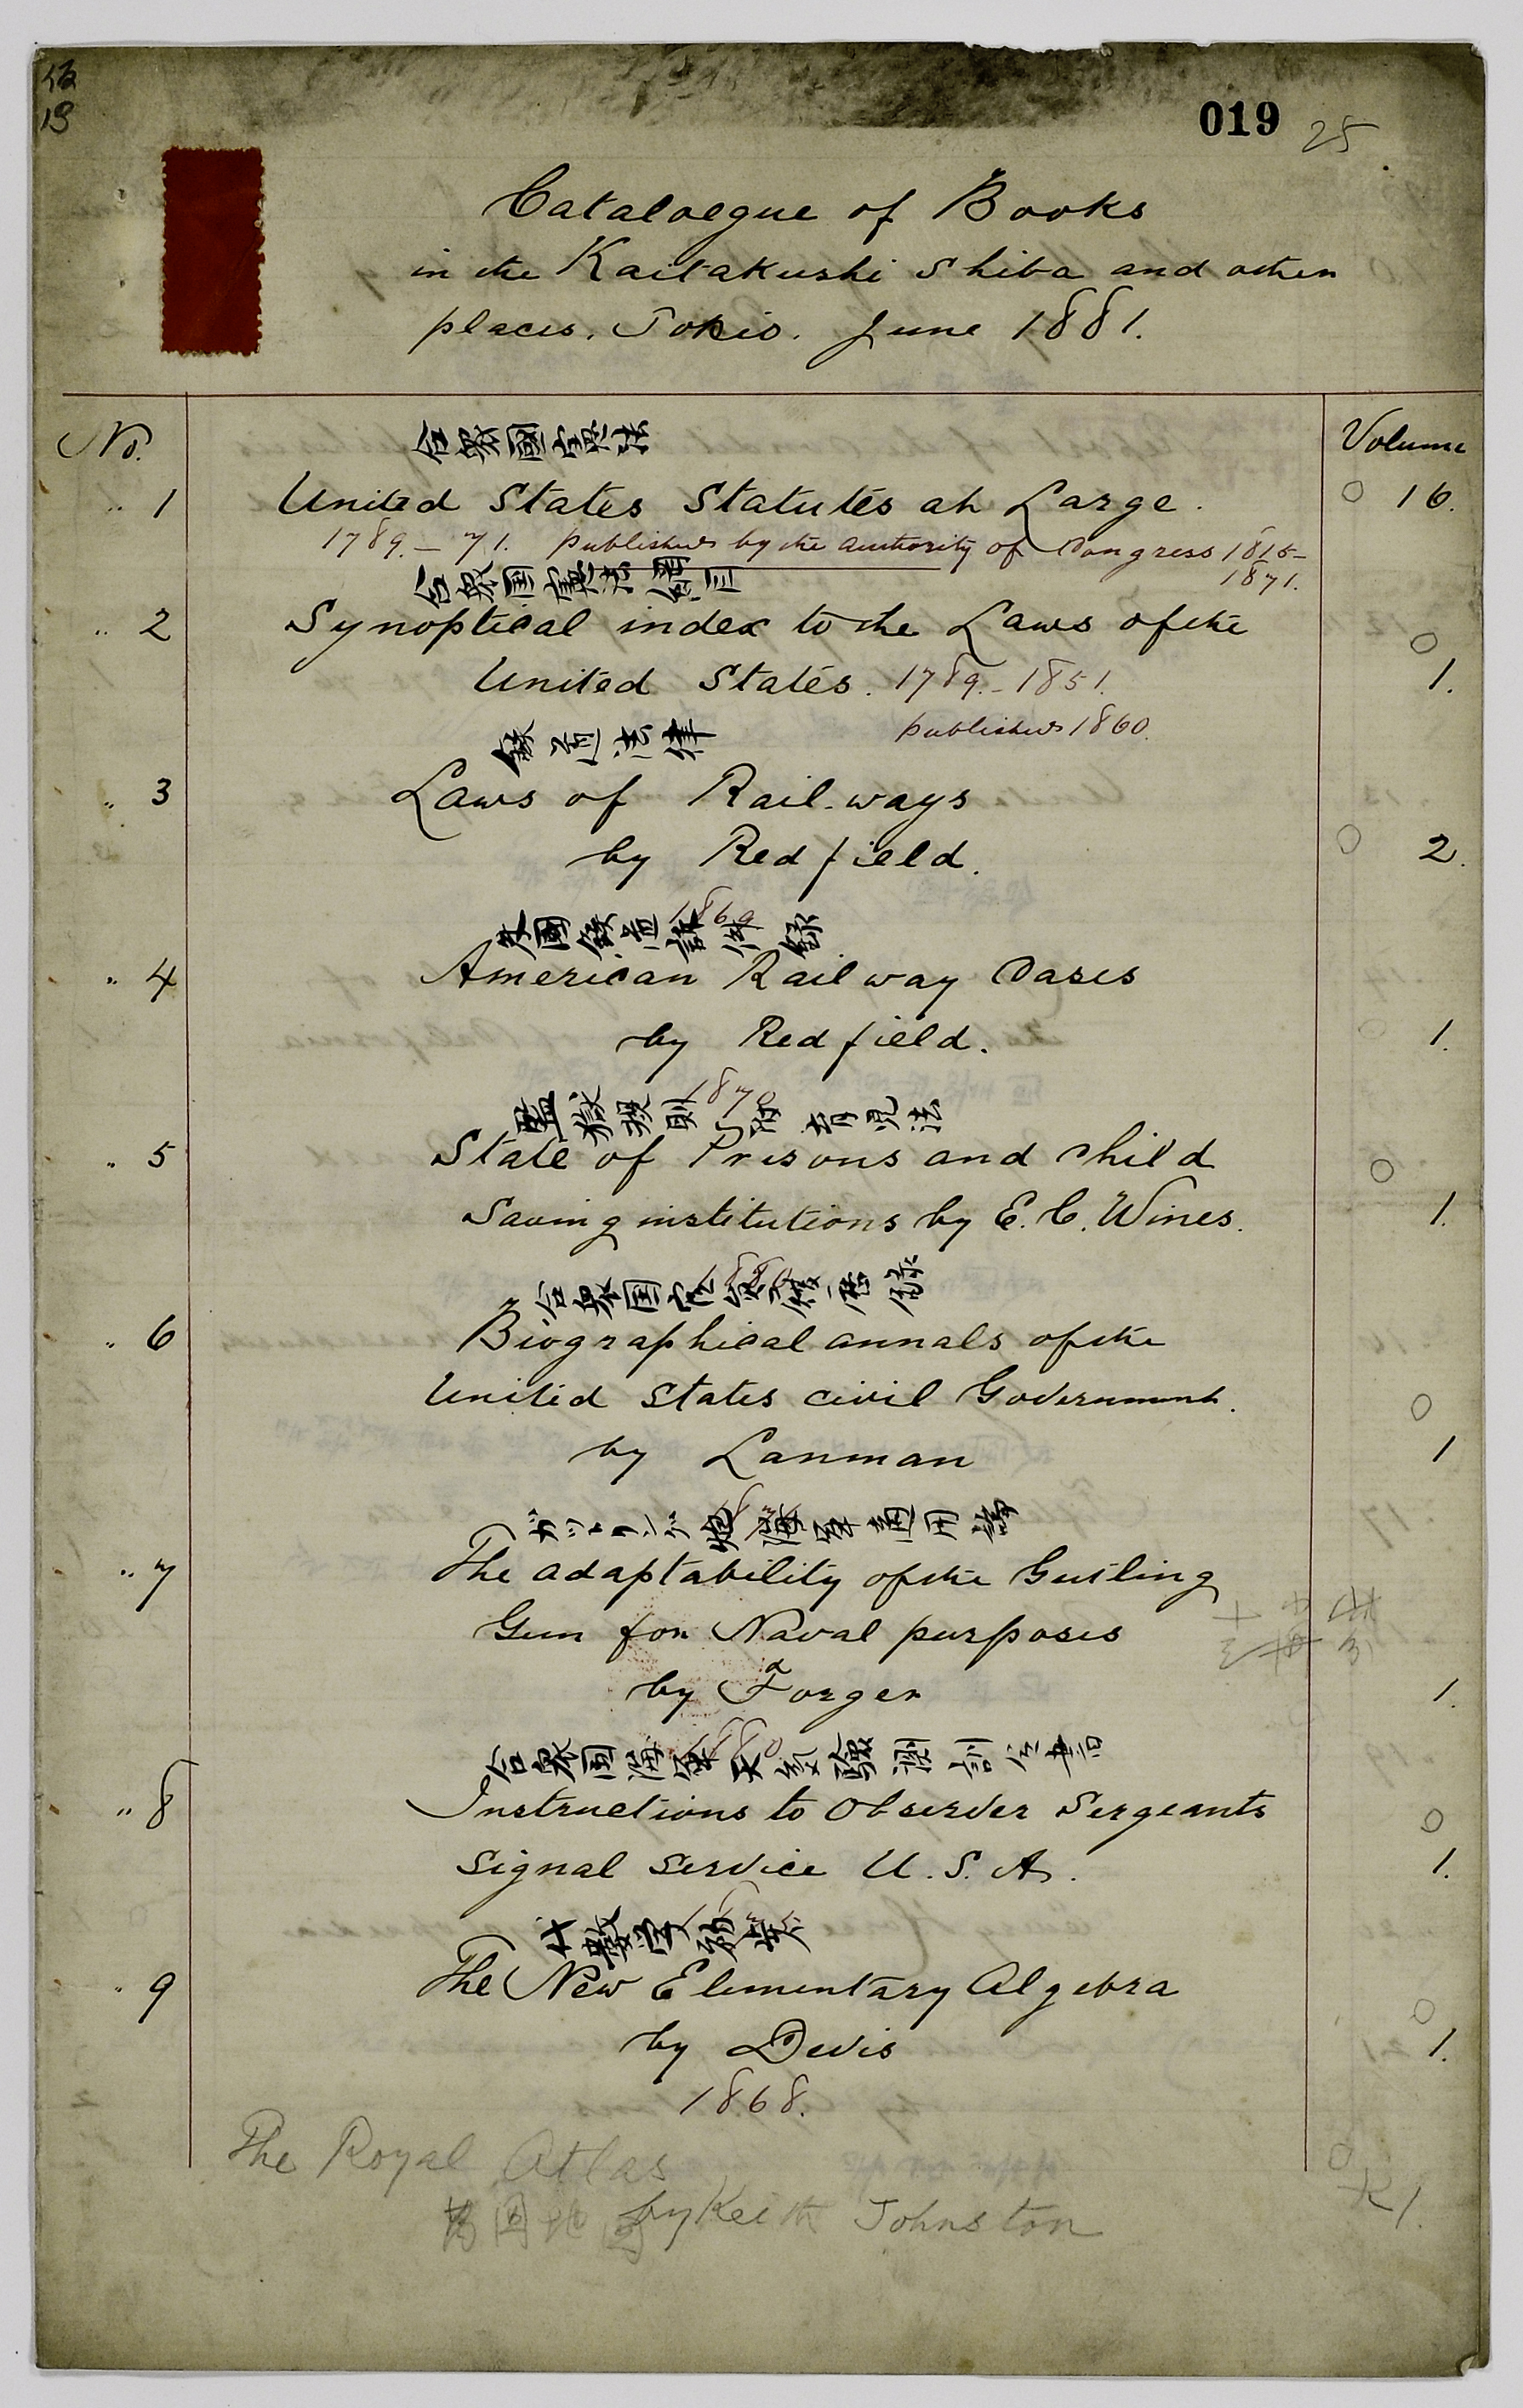 019 25
Cataloegue of Books
in the Kaitakushi Shiba and other
places. Tokio. June 1881.
No. Volume
合衆國憲法
" 1 United States Statutes at Large. 16.
1789.–71. published by the authority of Congress 1815–
1871.
" 2 Synoptical index to the Laws of the
United States. 1789.–1851. 1.
published 1860.
鉄道法律
" 3 Laws of Rail-ways
by Redfield. 2.
1869
" 4 American Railway Cases
by Redfield. 1.
1870
" 5 State of Prisons and Child
Saving institutions by E. C. Wines. 1.
1880
" 6 Biographical annals of the
United States civil Government.
by Lanman 1
" 7 The adaptability of the Gutling
Gun for Naval purposes
by Forger 1.
1880
" 8 Instructions to Observer Sergeants
Signal Service U.S.A. 1.
" 9 The New Elementary Algebra
by Devis 1.
1868.
The Royal Atlas
by Keith Johnston 1.